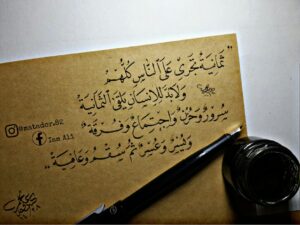 "ثمانية تجري على الناس كلهم
ولابد للإنسان يلقى الثمانية
سرور وحزن واجتماع وفرقة
ويسر وعسر ثم سقم وعافية"
@matador.82
Iam Ali